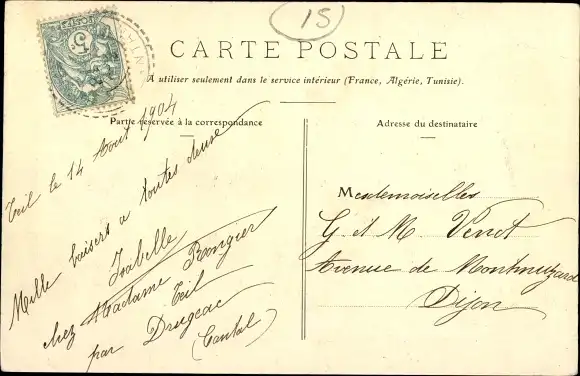 15
CARTE POSTALE
A utiliser seulement dans le service intérieur (France, Algérie, Tunisie).
Partie réservée à la correspondance
Adresse du destinataire
Teil le 14 Aout 1904
Mille baisers a toutes deux
Isabelle
chez Madame Rongier
Teil
par Drugeac
(Cantal)
Mesdemoiselles
G. et M. Venot
Avenue de Montmuzard
Dijon